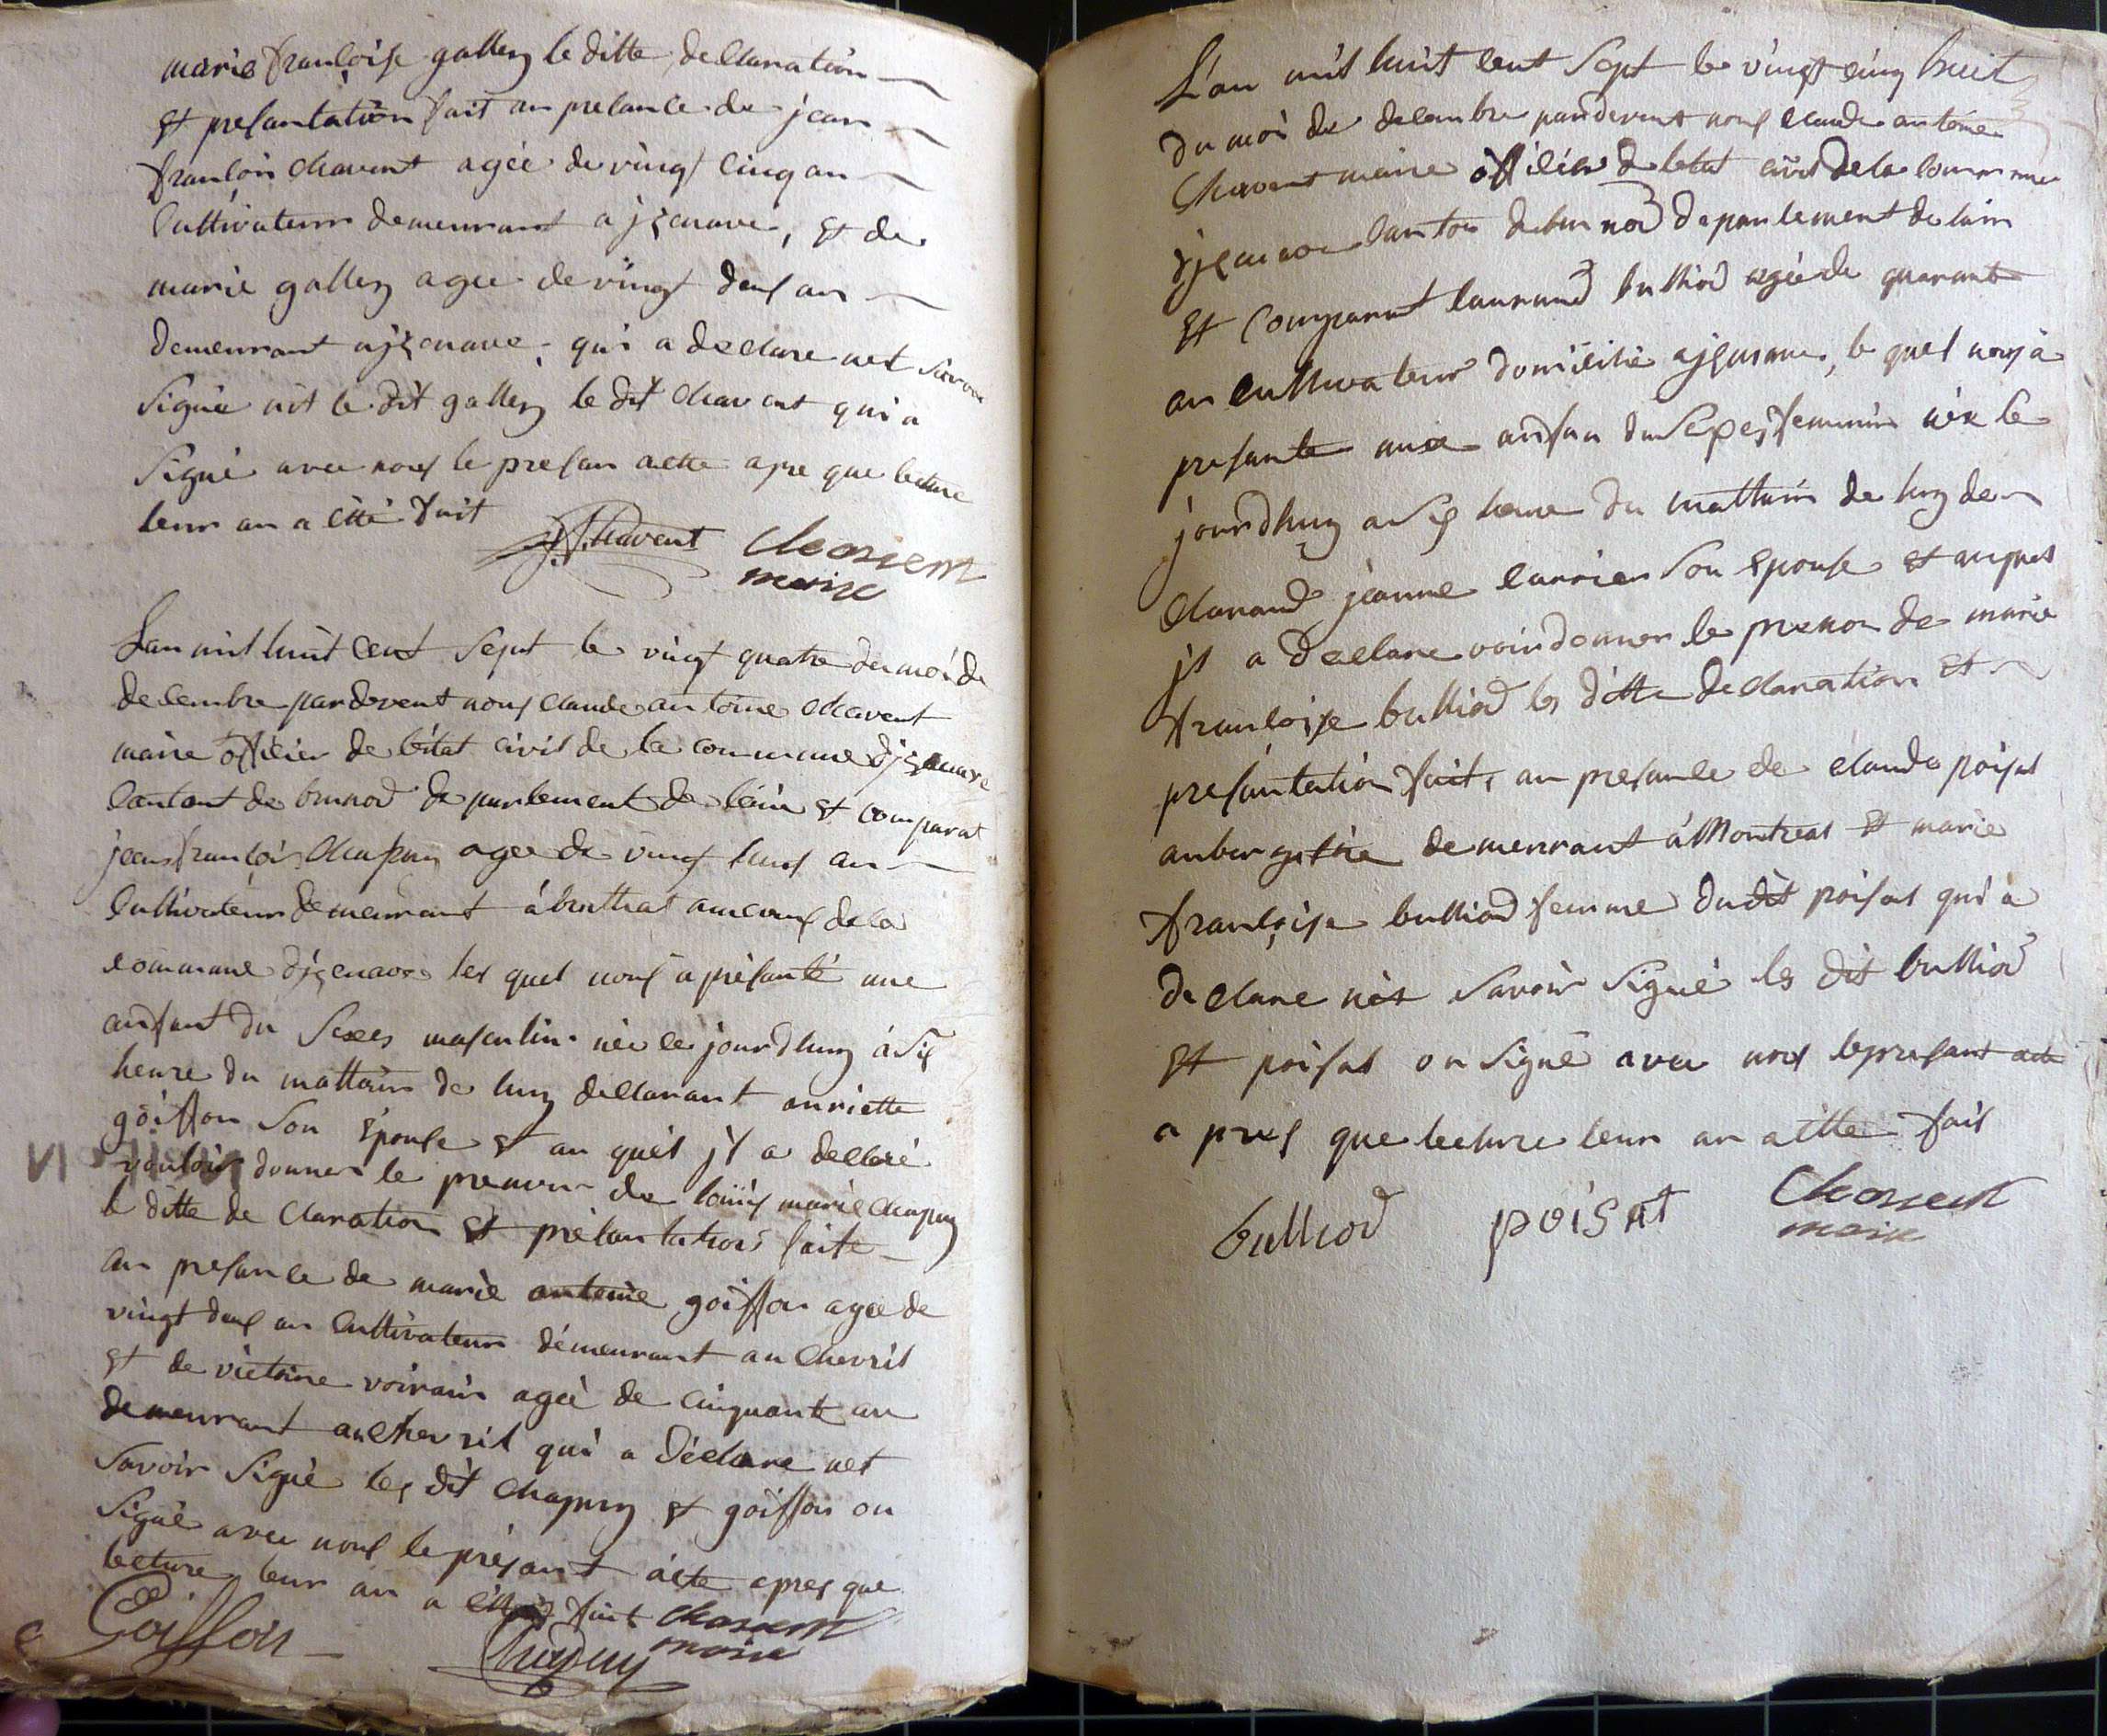 marie françoise galley le ditte declaration
Et presantation fait an presance de jean
françois chavent agée de vingt cinq an
Cultivateur demeurant a jzenave, Et de
marie galley agee de vingt deux an
demeurant ajzenave, qui a declare net savoir
Signée nit le dit galley le dit chavent qui a
Signé avec nous le presan actte apre que lecture
leur an a étté fait
Chavent
Chavent
maire
L'an mil huit Cent Sept le vingt quatre du moi de
decembre pardevent nous claude antoine chavent
maire officier de l'état civil de la commune djzenave
Cantont de brunod departement de l'ein Et comparat
jean françois Chapuy agee de vingt huit an
Cultivateur demeurant á hameaux de la
commune djzenave les quel nous a présanté une
anfant du Sexes masculin née le jourdhuy á Six
heure du mattain de luy declarant anriette
goiffon Son Épouse Et au quel jl a declaré
vouloir donner le prenom de louis marie chapuy
le ditte de Claration Et présantation faite
an presance de marie antoine goiffon agee de
vingt deux an Cultivateur démeurant au Chevril
Et de victoire voirain agéé de cinquante an
demeurant au Chevril qui a Déclare net
Savoir Signé les dit Chapuy Et goiffon on
Signé avec nous le présant acte apres que
lecture leur an a fait
Chavent
maire
Goiffon
Chapuy
L'an mil huit cent Sept le vingt cinq
du moi de decembre pardevent nous claude antoine
Chavent maire officier de letat civil de la commune
djzenave Canton de brunod departement de lain
Et Comparant laurand bulliod agée de quarante
an Cultivateur domicilié ajzenave, le quel nous a
presante une anfan du Sexes feminin née le
jourdhuy a Six heure du mattain de luy de
Clarand jeanne carrier Son Épouse Et auquel
jl a declare voir donner le prenon de marie
françoise bulliod les ditte declaration Et
presantation fait, an presance de claude poisat
aubergiste demeurant á Montreal Et marie
françoise bulliod femme du dit poisat qui a
declare nét Savoir Signé les dit bulliod
Et poisat on Signé avec nous le presant acte
a pres que lecture leur an a étté fait
bulliod
poisat
Chavent
maire